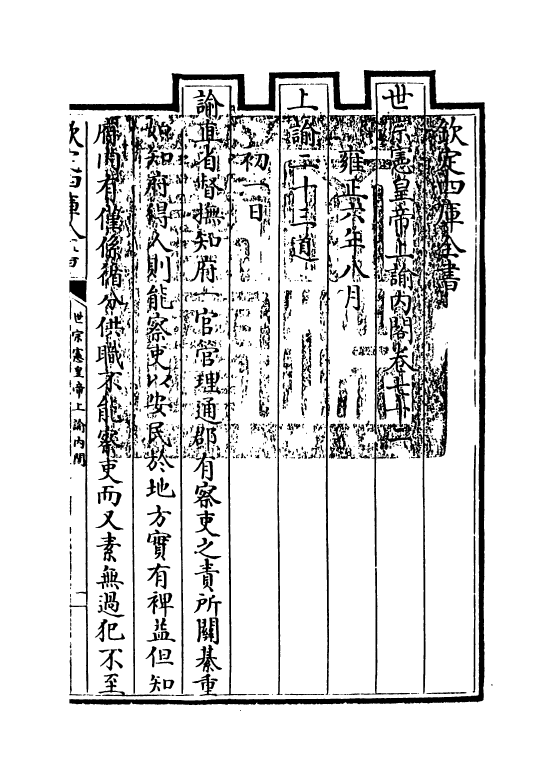 欽定四庫全書
世宗憲皇帝上諭內閣卷七十二
雍正六年八月
上諭二十三道
初一日
諭直省督撫知府一官管理通郡有察吏之責所關綦重
如知府得人則能察吏以安民於地方實有裨益但知
府內有僅係循分供職不能察吏而又素無過犯不至
欽定四庫全書
世宗憲皇帝上諭內閣
一